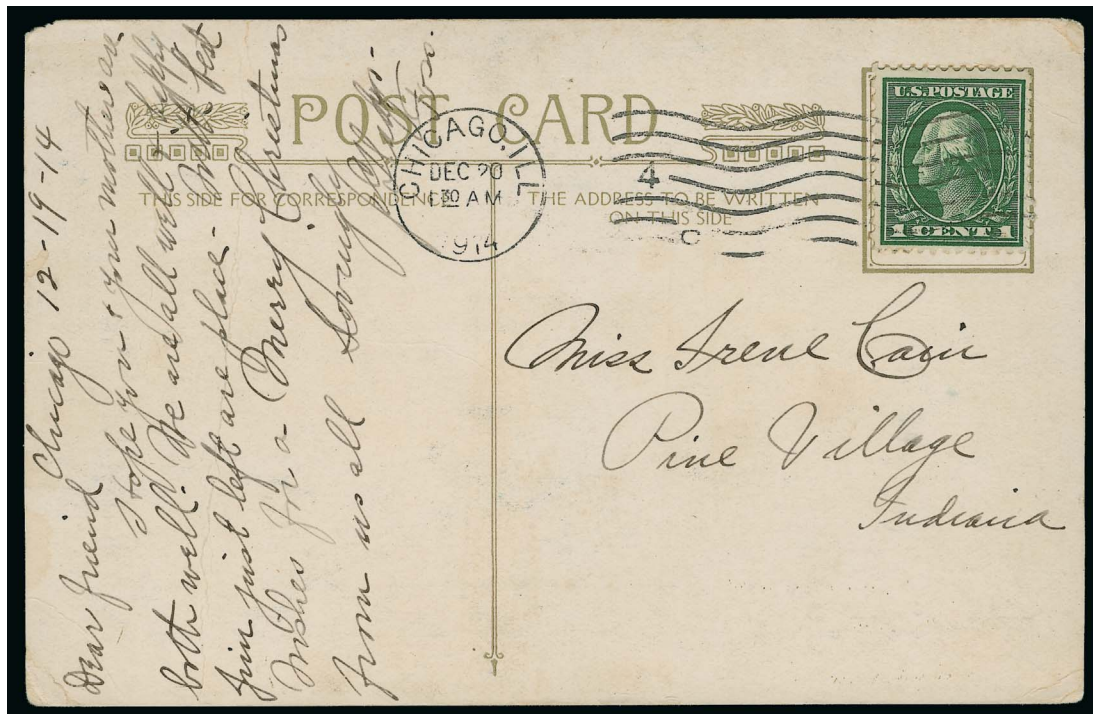 POST CARD
THIS SIDE FOR CORRESPONDENCE
THE ADDRESS TO BE WRITTEN
ON THIS SIDE
CHICAGO, ILL
DEC 20
30 AM
1914
4
C
U.S. POSTAGE
1 CENT 1
Chicago 12-19-14
Dear friend
Hope you & your mother are
both well. We are all well & happy
Jim just left are place - with best
Wishes for a Merry Christmas
from us all Loving
Miss Irene Cain
Pine Village
Indiana